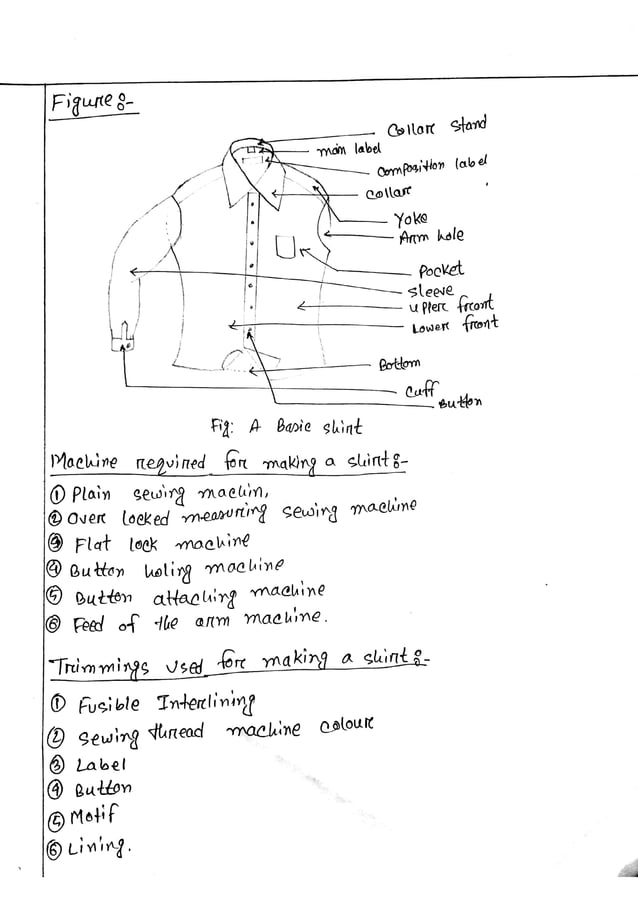 Figure:-
Collar stand
main label
composition label
Collar
Yoke
Arm hole
Pocket
sleeve
upper front
Lower front
Bottom
Cuff
Button
Fig: A Basic shirt
Machine required for making a shirt:-
① Plain sewing machin,
② Over locked measuring sewing machine
③ Flat lock machine
④ Button holing machine
⑤ Button attaching machine
⑥ Feed of the arm machine.
Trimmings used for making a shirt:-
① Fusible Interlining
② Sewing thread machine colour
③ Label
④ Button
⑤ Motif
⑥ Lining.